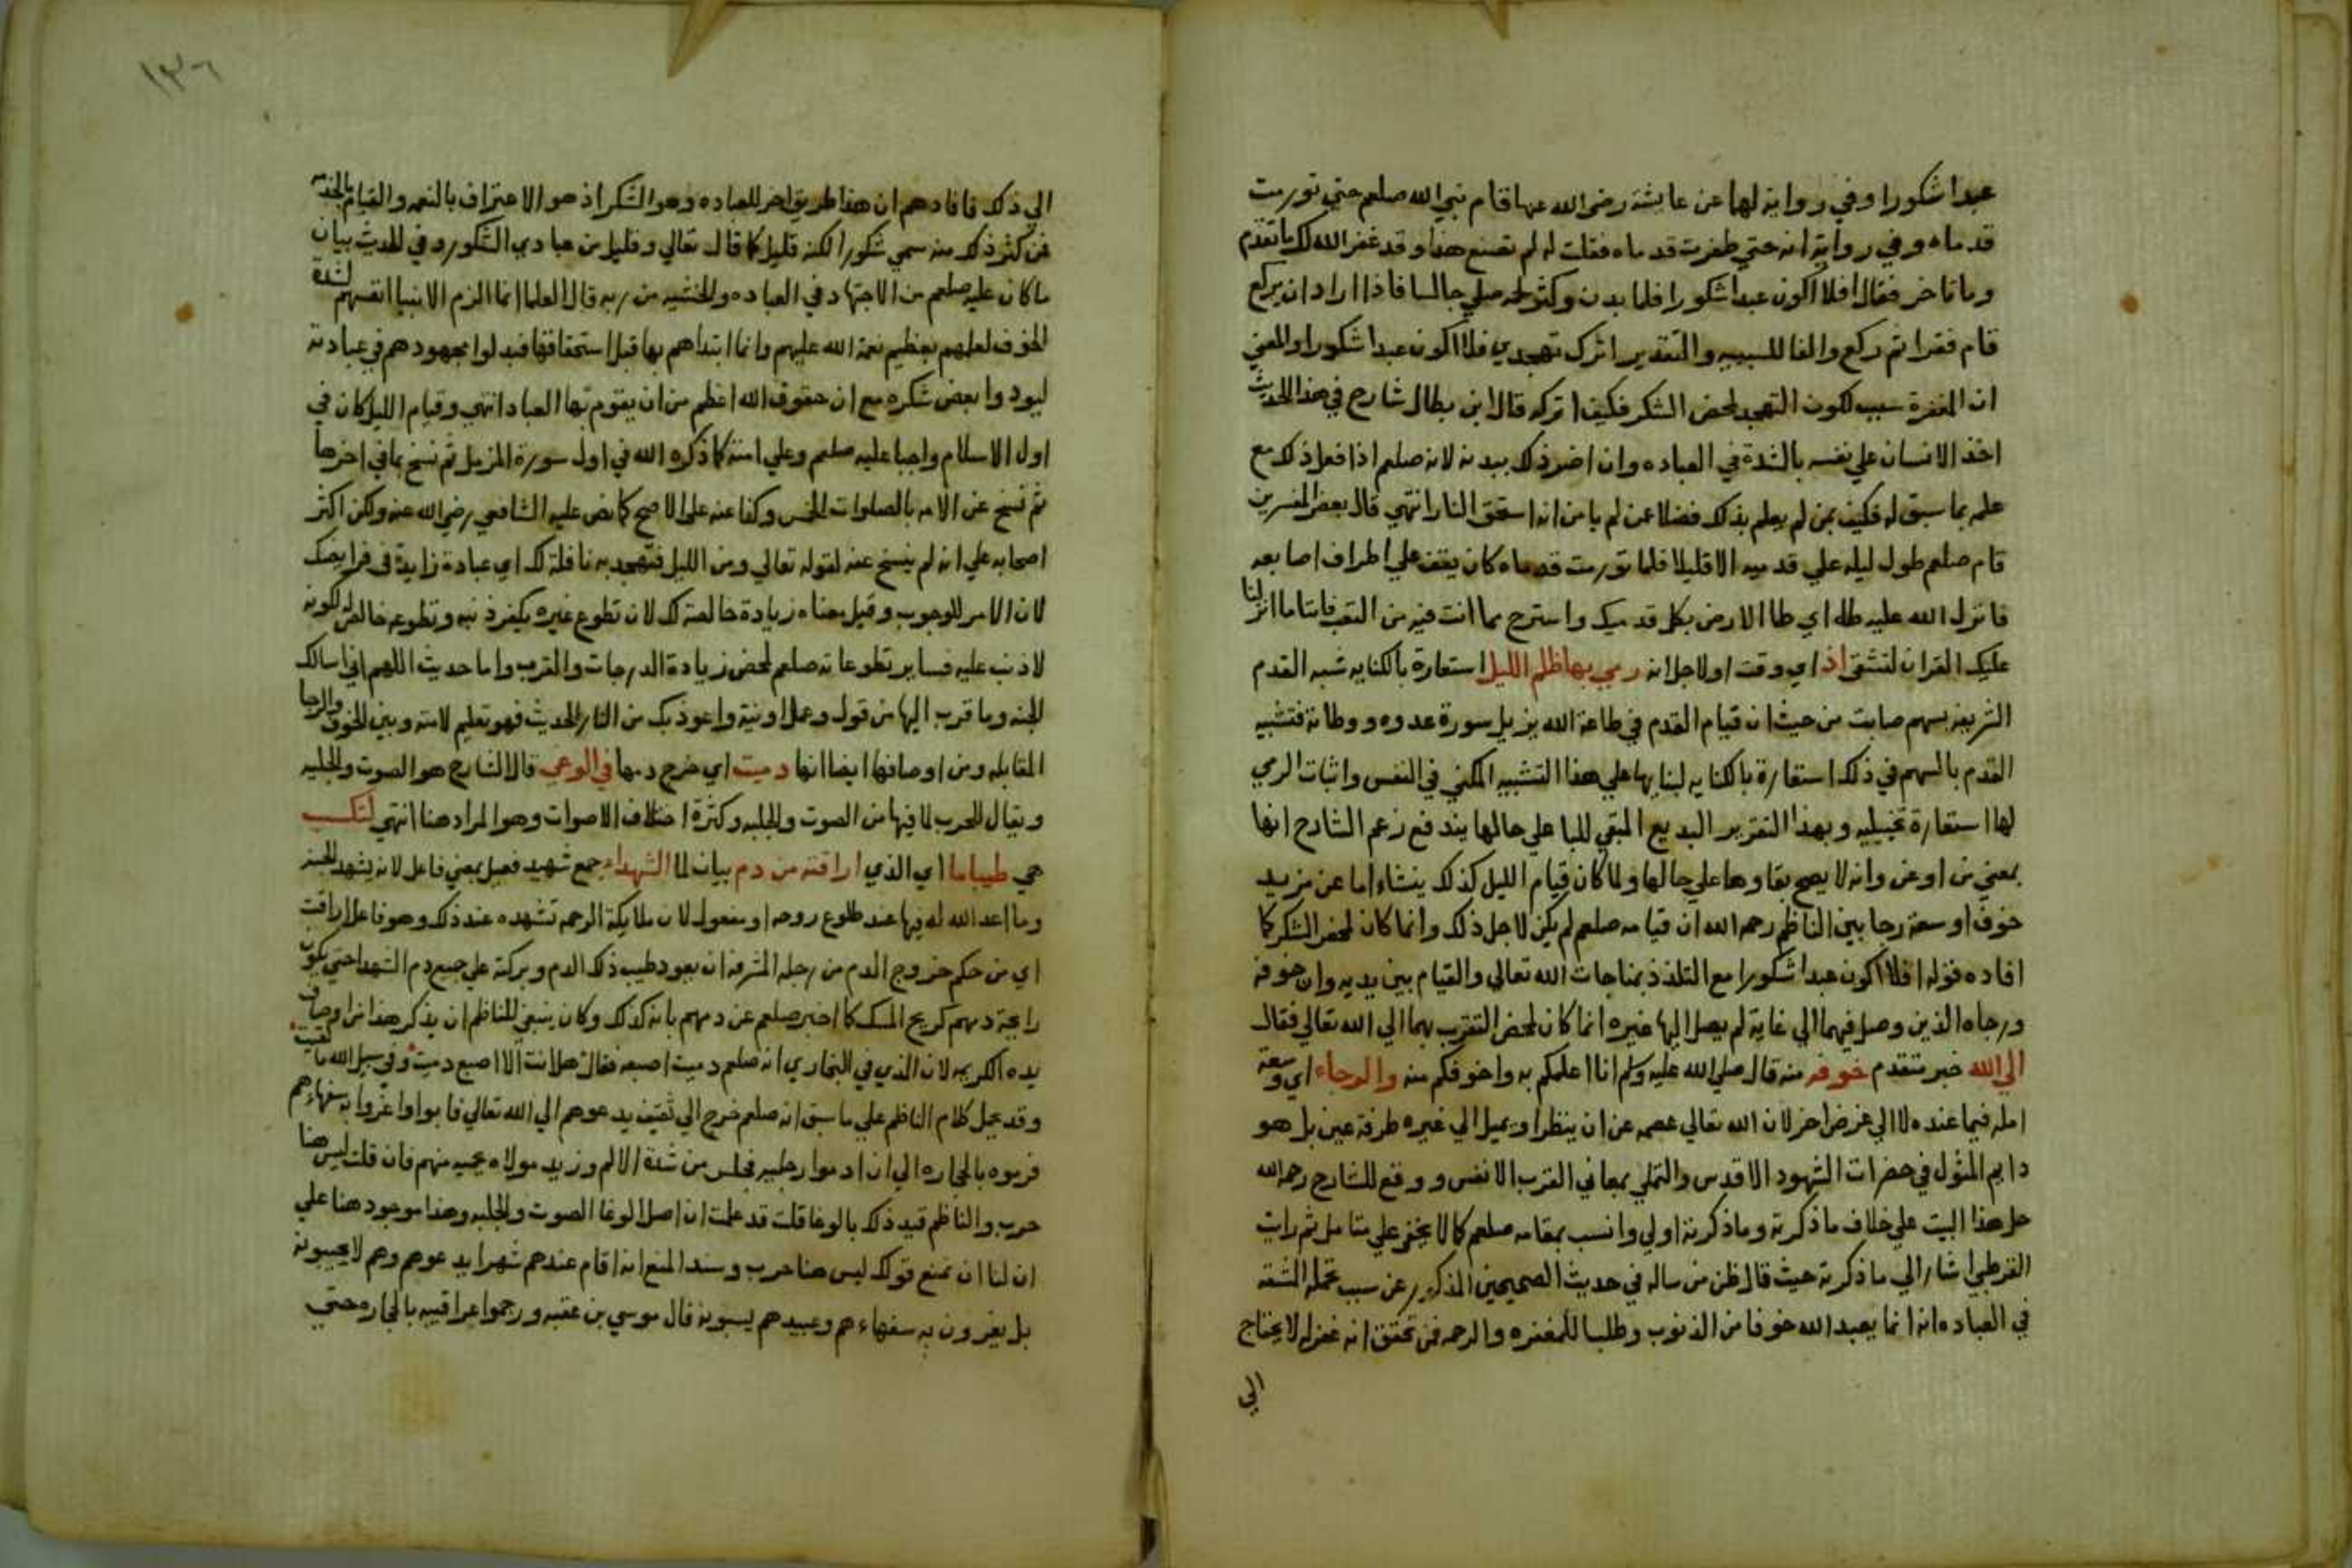 عبدا شكورا وفي رواية لها عن عايشة رضي الله عنها قام نبي الله صلعم حتي تورمت
قدماه وفي رواية انه حتي تفطرت قدماه فقلت له لم تصنع هذا وقد غفر الله لك ما تقدم
وما تاخر فقال افلا اكون عبدا شكورا فلما بدن وكثر لحمه صلي جالسا فاذا اراد ان يركع
قام فقرا ثم ركع والفا للسببيه والتقدير اترك تهجدي فلا اكون عبدا شكورا والمعني
ان المغفرة سبب لكون التهجد لمحض الشكر فكيف اتركه قال ابن بطال شارح في هذا الحديث
اخذ الانسان علي نفسه بالشدة في العباده وان اضر ذلك ببدنه لانه صلعم اذا فعل ذلك مع
علمه بما سبق له فكيف بمن لم يعلم بذلك فضلا عن لم يامن انه استحق النار انتهي قال بعض المفسرين
قام صلعم طول ليله علي قدميه الا قليلا فلما تورمت قدماه كان يقف علي اطراف اصابعه
فانزل الله عليه طه اي طا الارض بكل قدميك واسترح مما انت فيه من التعب فاننا ما انزلنا
عليك القران لتشقي اذ اي وقت او لاجل انه رمي بها ظلم الليل استعارة بالكنايه شبه القدم
الشريفه بسهم صابت من حيث ان قيام القدم في طاعة الله يزيل سورة عدوه ووطاته فتشبيه
القدم بالسهم في ذلك استعارة بالكنايه لبنايها علي هذا التشبيه المكني في النفس واثبات الرمي
لها استعارة تخييليه وبهذا التقرير البديع المبقي للبا علي حالها يندفع زعم الشارح انها
بمعني من او عن وانه لا يصح بقاوها علي حالها ولما كان قيام الليل كذلك ينشاء اما عن مزيد
خوف او سعة رجا بين الناظم رحمه الله ان قيامه صلعم لم يكن لاجل ذلك وانما كان لمحض الشكر كما
افاده قوله افلا اكون عبدا شكورا مع التلذذ بمناجات الله تعالي والقيام بين يديه وان خوفه
ورجاه الذين وصل فيهما الي غاية لم يصل اليها غيره انما كان لمحض التقرب بهما الي الله تعالي فقال
الي الله خبر متقدم خوفه منه قال صلي الله عليه وسلم انا اعلمكم به واخوفكم منه والرجاء اي وسعة
امله فيما عنده لا الي غرض اخر لان الله تعالي عصمه عن ان ينظر او يميل الي غيره طرفة عين بل هو
دايم المثول في حضرات الشهود الاقدس والتملي بمعاني القرب الانفس ووقع للشارح رحمه الله
حل هذا البيت علي خلاف ما ذكرته وما ذكرته اولي وانسب بمقامه صلعم كما لا يخفي علي متامل ثم رايت
القرطبي اشار الي ما ذكرته حيث قال ظن من ساله في حديث الصحيحين المذكور عن سبب تحمله المشقه
في العباده انه انما يعبد الله خوفا من الذنوب وطلبا للمغفره والرحمه فمن تحقق انه غفر له لا يحتاج
الي
١٣٦
الي ذلك فافادهم ان هذا طريق اخر للعباده وهو الشكر اذ هو الاعتراف بالنعمه والقيام بالخدمه
فمن كثر ذلك منه سمي شكورا لكنه قليل كما قال تعالي وقليل من عبادي الشكور وفي الحديث بيان
ما كان عليه صلعم من الاجتهاد في العباده والخشيه من ربه قال العلما انما الزم الانبيا انفسهم لشدة
الخوف لعلمهم بعظيم نعمة الله عليهم وانما ابتداهم بها قبل استحقاقها فبذلوا مجهودهم في عبادته
ليودوا بعض شكره مع ان حقوق الله اعظم من ان يقوم بها العباد انتهي وقيام الليل كان في
اول الاسلام واجبا عليه صلعم وعلي امته كما ذكره الله في اول سورة المزمل ثم نسخ بما في اخرها
ثم نسخ عن الامه بالصلوات الخمس وكذا عنه علي الاصح كما نص عليه الشافعي رضي الله عنه ولكن اكثر
اصحابه علي انه لم ينسخ عنه لقوله تعالي ومن الليل فتهجد به نافلة لك اي عبادة زايدة في فرايضك
لان الامر للوجوب وقيل معناه زيادة خالصة لك لان تطوع غيره يكفر ذنبه وتطوعه خالص له لكونه
لا ذنب عليه فساير تطوعاته صلعم لمحض زيادة الدرجات والقرب واما حديث اللهم اني اسالك
الجنه وما قرب اليها من قول وعمل او نية واعوذ بك من النار الحديث فهو تعليم لامته وبين الخوف والرجا
المقابله ومن اوصافها ايضا انها دميت اي خرج دمها في الوغي قال الشارح هو الصوت والجلبه
ويقال للحرب لما فيها من الصوت والجلبه وكثرة اختلاف الاصوات وهو المراد هنا انتهي لتكسب
هي طيبا ما اي الذي اراقته من دم بيان لما الشهداء جمع شهيد فعيل بمعني فاعل لانه يشهد الجنه
وما اعد الله له فيها عند طلوع روحه او مفعول لان ملايكة الرحمه تشهده عند ذلك وهو فاعل اراقت
اي من حكم خروج الدم من رجله المشرفه ان يعود طيب ذلك الدم وبركته علي جميع دم الشهدا حتي يكون
رايحة دمهم كريح المسك كما اخبر صلعم عن دمهم بانه كذلك وكان ينبغي للناظم ان يذكر هذا من اوصاف
يده الكريمه لان الذي في البخاري انه صلعم دميت اصبعه فقال هل انت الا اصبع دميت وفي سبيل الله ما لقيت
وقد يحمل كلام الناظم علي ما سبق انه صلعم خرج الي ثقيف يدعوهم الي الله تعالي فابوا واغروا به سفهاءهم
فرموه بالحجاره الي ان ادموا رجليه فجلس من شدة الالم وزيد مولاه يحميه منهم فان قلت ليس هنا
حرب والناظم قيد ذلك بالوغا قلت قد علمت ان اصل الوغا الصوت والجلبه وهذا موجود هنا علي
ان لنا ان نمنع قولك ليس هنا حرب وسند المنع انه اقام عندهم شهرا يدعوهم وهم لا يجيبونه
بل يغرون به سفهاءهم وعبيدهم يسبونه قال موسي بن عقبه ورجموا عراقيبه بالحجاره حتي